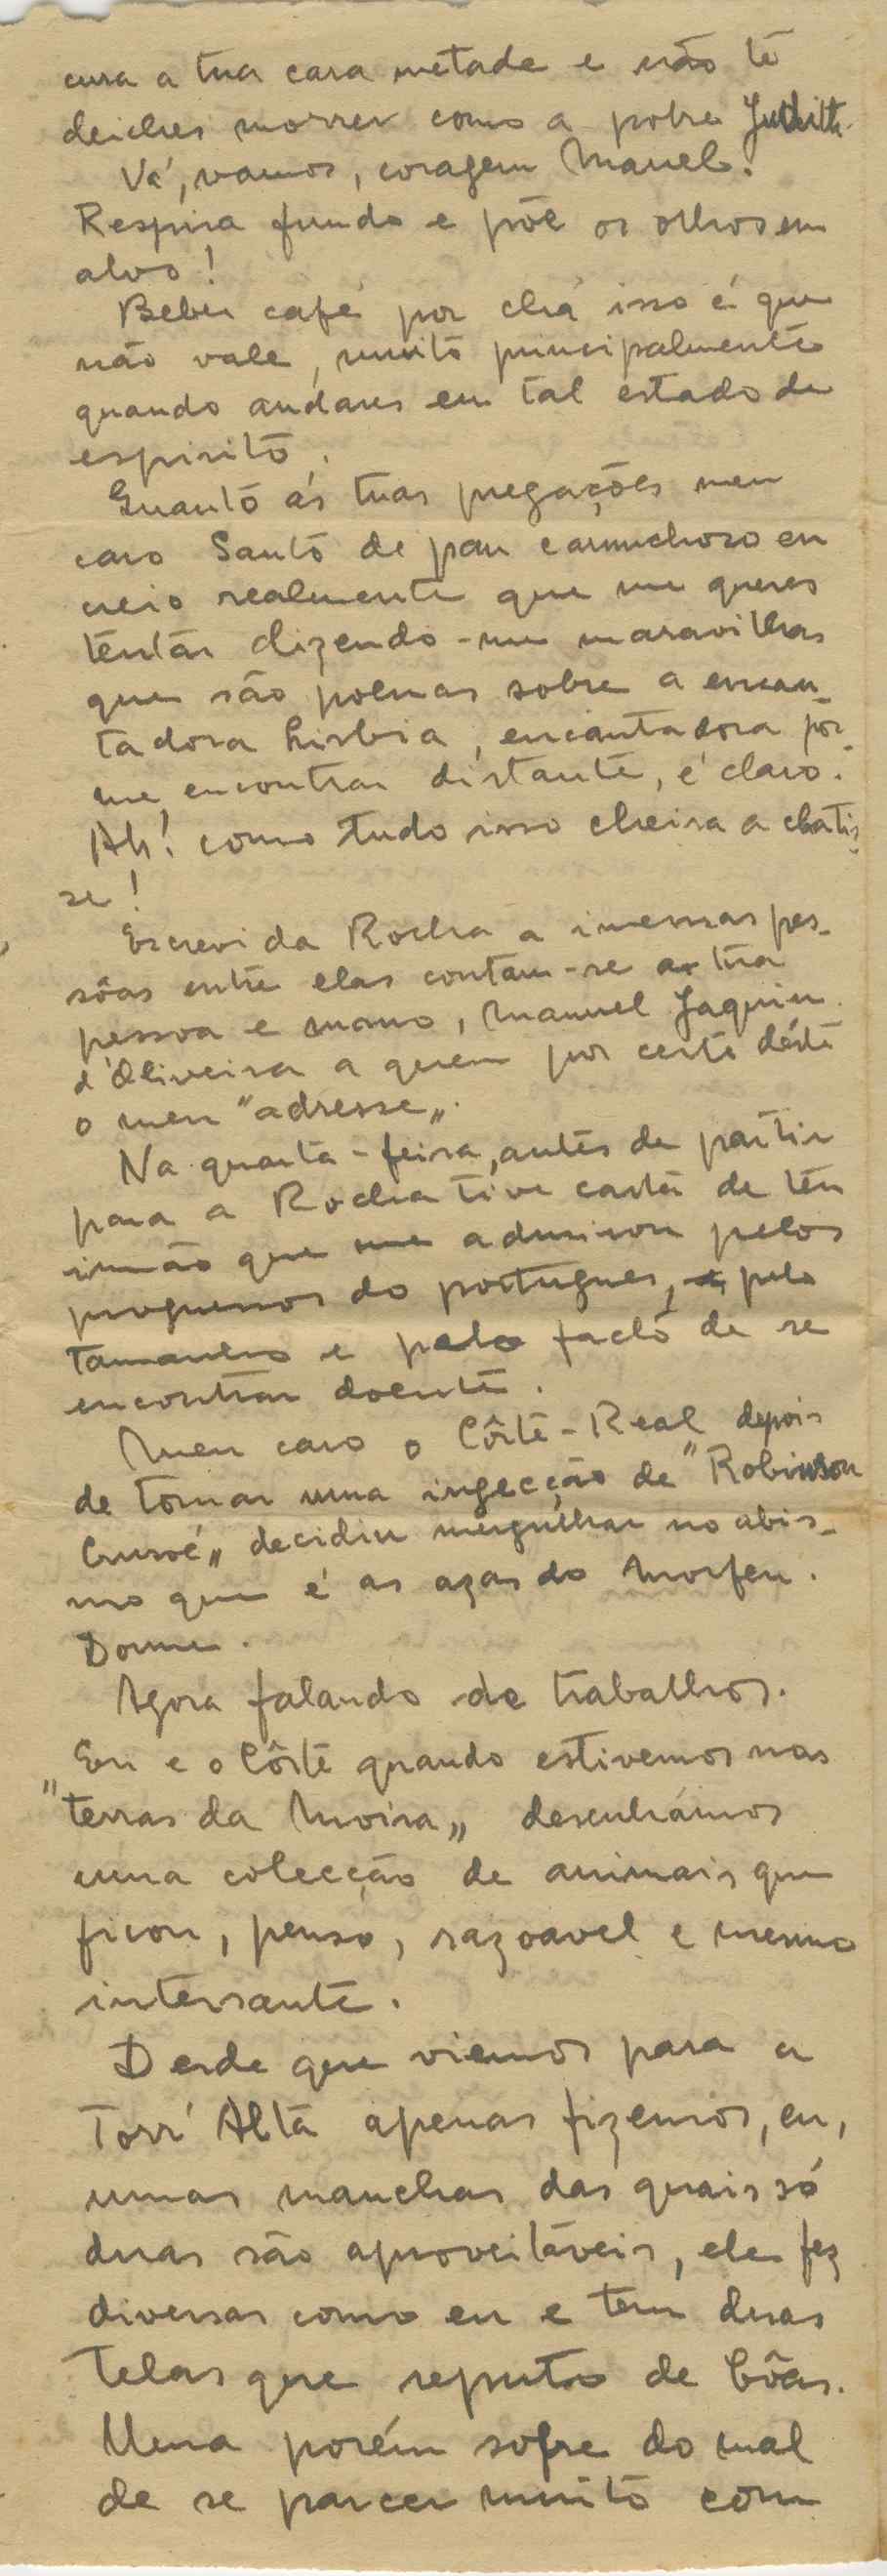 cura a tua cara metade e não te
deiches morrer como a pobre Judith.
Vá, vamos, coragem Manel!
Respira fundo e põe os olhos em
alvo!
Beber café por chá isso é que
não vale, muito principalmente
quando andares em tal estado de
espirito.
Quanto ás tuas pregações meu
caro Santo de pau carunchoso eu
creio realmente que me queres
tentar dizendo-me maravilhas
que são poemas sobre a encan-
tadora Lisbia, encantadora por
me encontrar distante, é claro.
Ah! como tudo isso cheira a chatis-
se!
Escrevi da Rocha a imensas pes-
sôas entre elas contam-se a tua
pessoa e mano, Manuel Jaquim
d'Oliveira a quem por certo déste
o meu "adresse".
Na quarta-feira, antes de partir
para a Rocha tive carta de teu
irmão que me admirou pelos
progressos do portugues, pelo
tamanho e pelo facto de se
encontrar doente.
Meu caro o Côrte-Real depois
de tomar uma ingecção de "Robinson
Crusoé" decidiu mergulhar no abis-
mo que é as azas do Morfeu.
Dorme.
Agora falando de trabalhos.
Eu e o Côrte quando estivemos nas
"terras da Moira" desenhámos
uma colecção de animais que
ficou, penso, razoavel e mesmo
intersante.
Desde que viemos para a
Torr' Alta apenas fizemos, eu,
umas manchas das quais só
duas são aproveitáveis, ele fez
diversas como eu e tem duas
telas que reputo de bôas.
Uma porém sofre do mal
de se parcer muito com